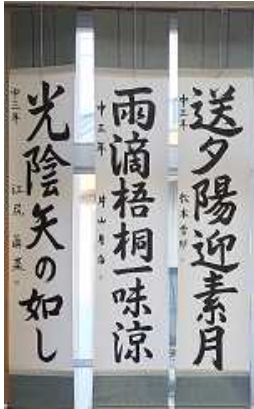 送夕陽迎素月
中三年
雨滴梧桐一味涼
中三年
光陰矢の如し
中三年